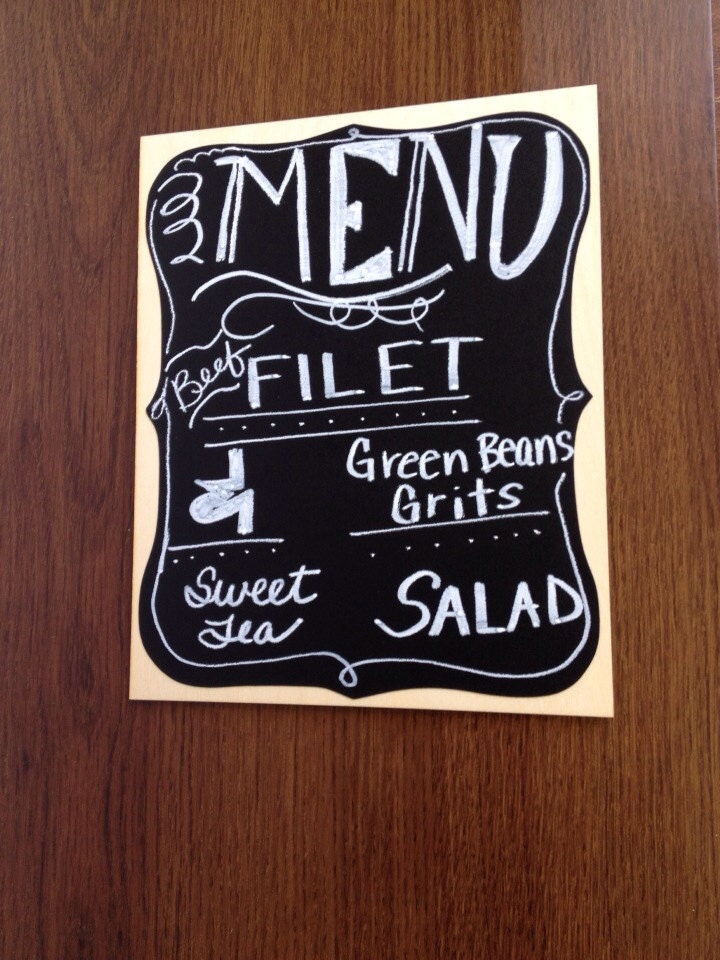 MENU
Beef FILET
Green Beans
Grits
Sweet
Tea
SALAD